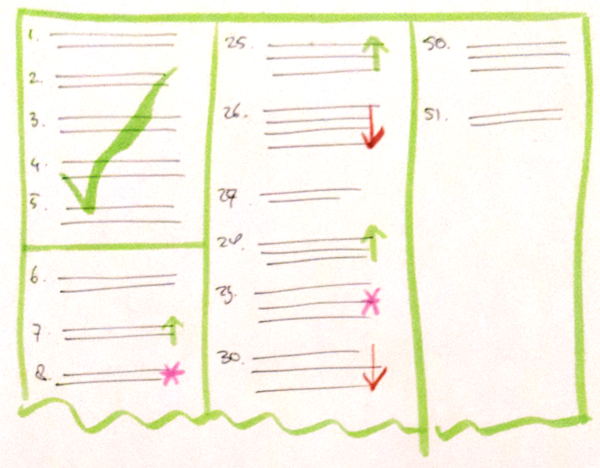 1.
2.
3.
4
5.
6.
7
8.
25.
26.
27.
28.
29.
30.
50.
51.